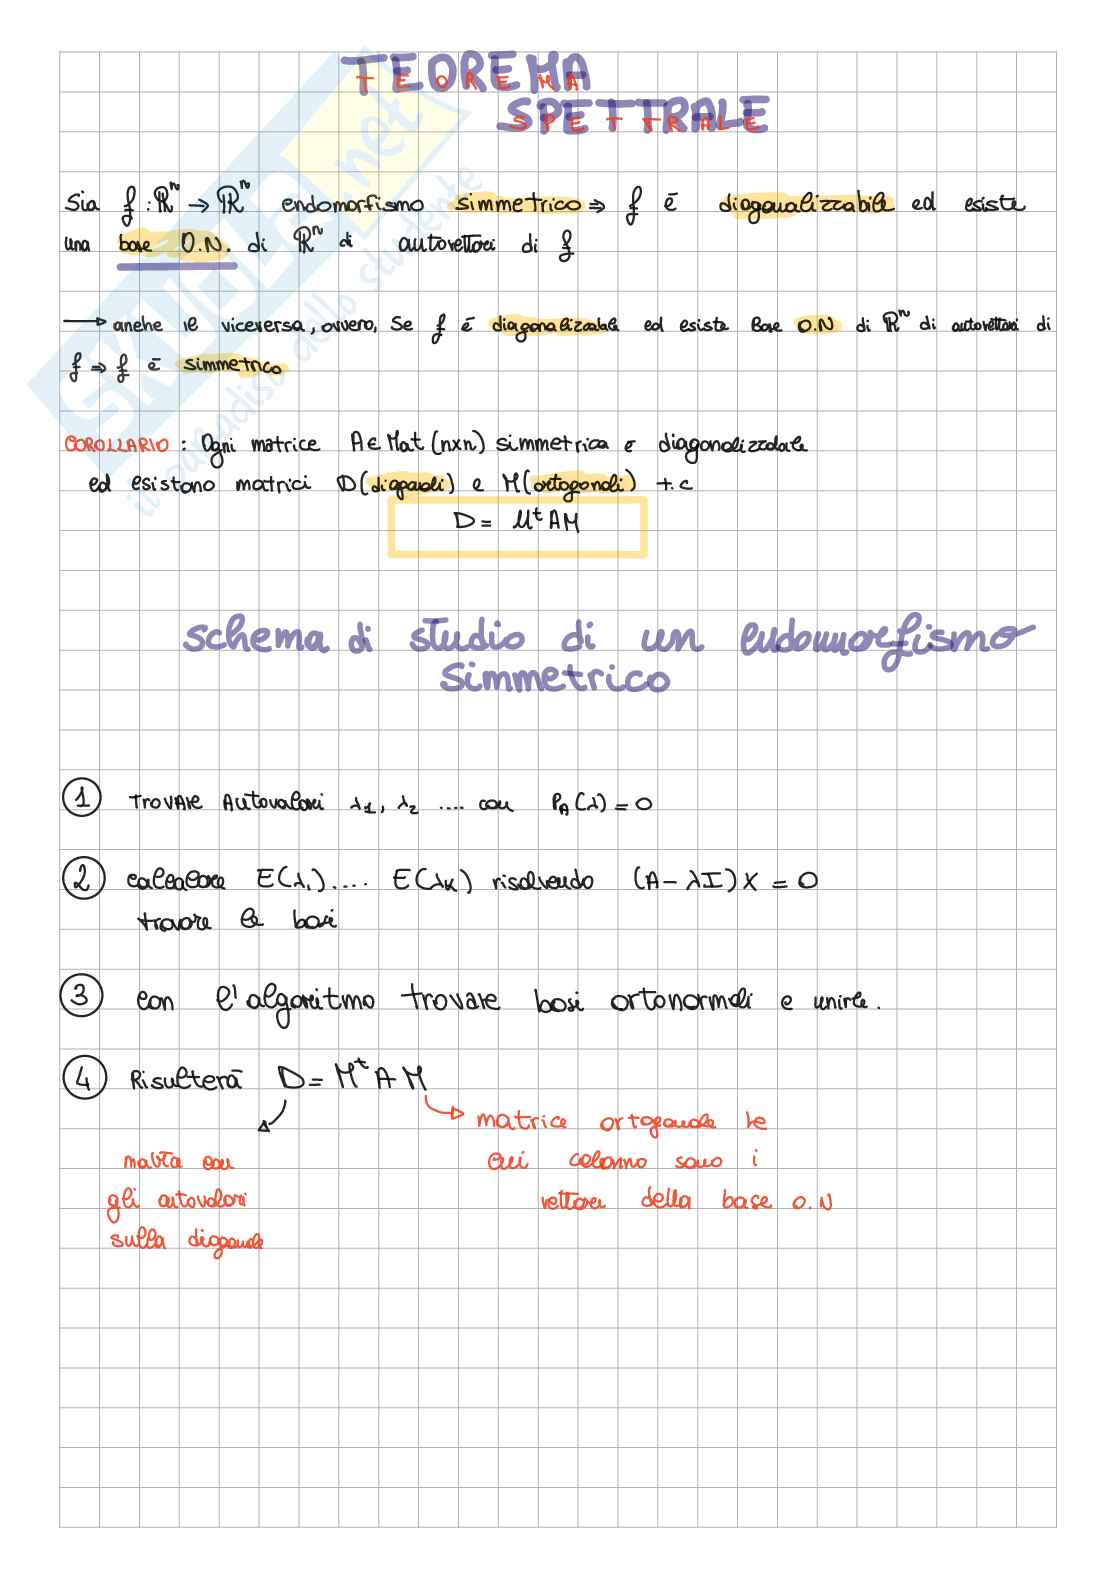 TEOREMA
SPETTRALE
Sia f : ℝⁿ → ℝⁿ endomorfismo simmetrico ⇒ f è diagonalizzabile ed esiste
una base O.N. di ℝⁿ di autovettori di f
→ anche il viceversa, ovvero, se f è diagonalizzabile ed esiste base O.N di ℝⁿ di autovettori di
f ⇒ f è simmetrico
COROLLARIO : Ogni matrice A ∈ Mat (n×n) simmetrica è diagonalizzabile
ed esistono matrici D(diagonali) e M(ortogonali) t.c
D = Mᵗ A M
schema di studio di un endomorfismo
simmetrico
1 Trovare Autovalori λ₁, λ₂ .... con P_A(λ) = 0
2 calcolare E(λ₁).... E(λₖ) risolvendo (A - λI) X = 0
trovare le basi
3 con l'algoritmo trovare basi ortonormali e unirle.
4 Risulterà D = Mᵗ A M
matrice ortogonale le
matrice con cui colonne sono i
gli autovalori vettori della base O.N
sulla diagonale
SKUOLA.net
il paradiso dello studente